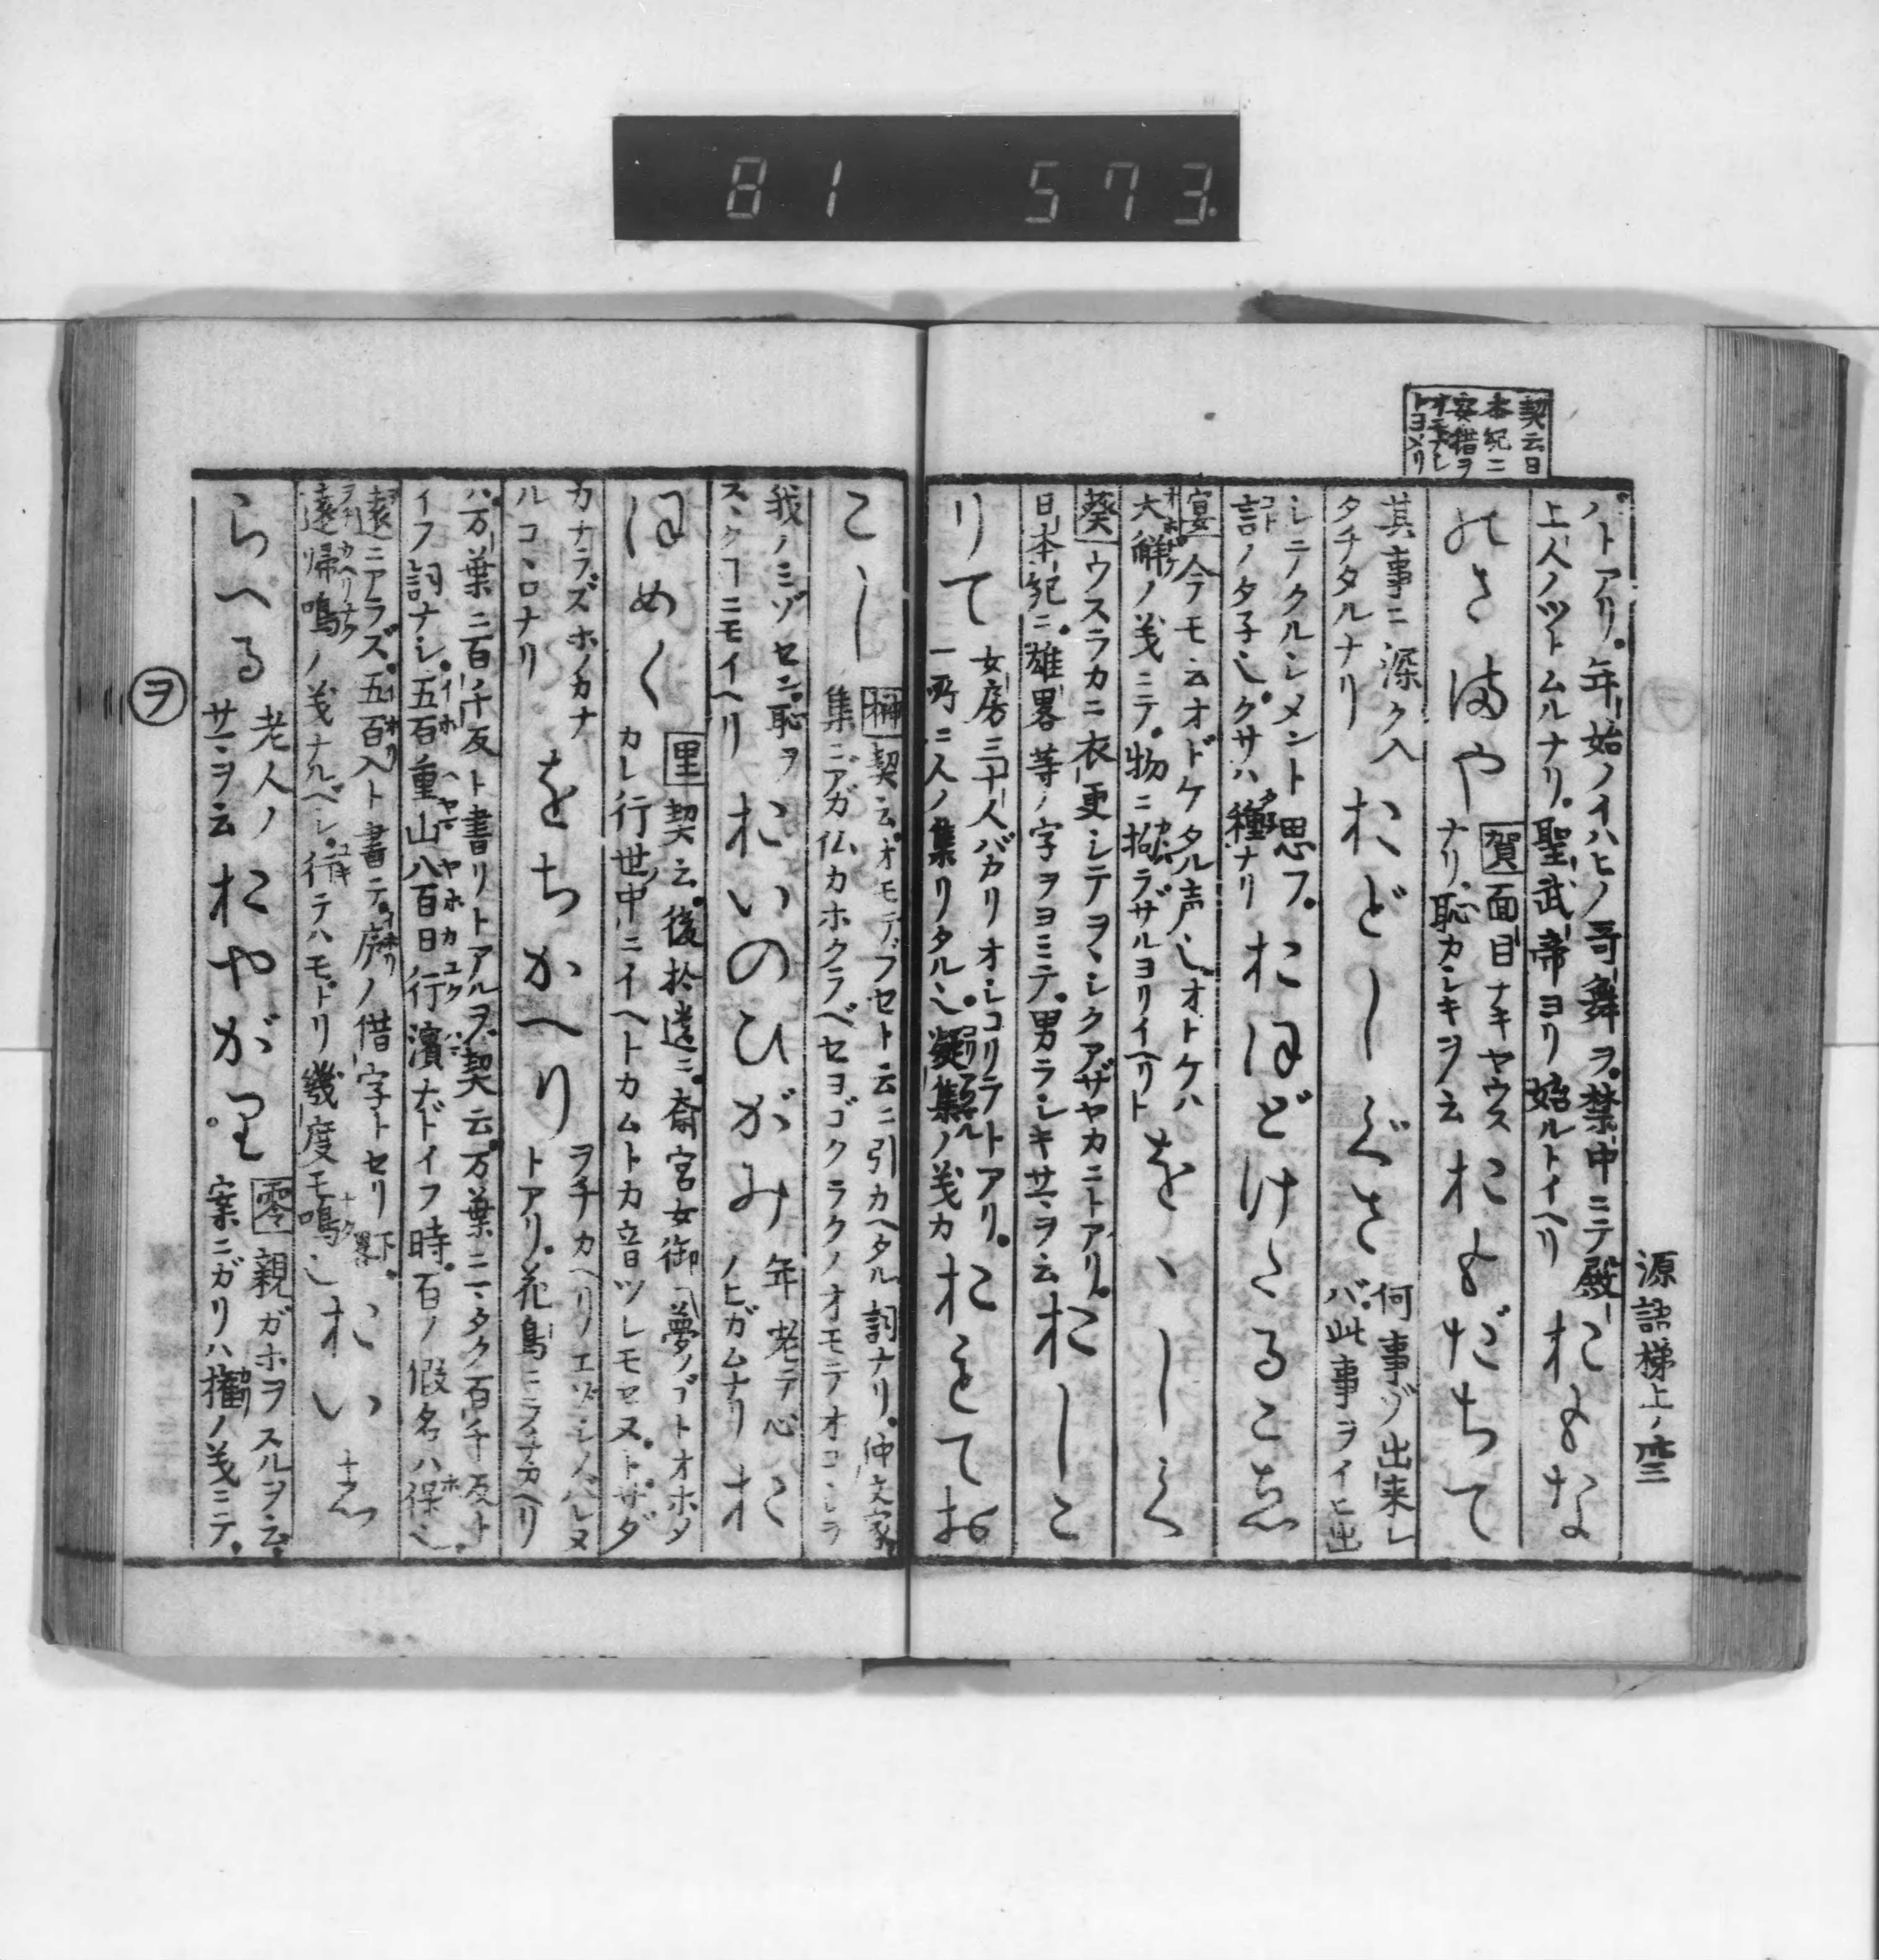 81 573.
契云日
本紀ニ
安措ヲ
オモナシ
トヨメリ
源語梯上ノ
ハトアリ。年始ノイハヒノ哥舞ヲ。禁中ニテ殿
上人ノツトムルナリ。聖武帝ヨリ始ルトイヘリ
おもな
のさまや
賀面目ナキヤウス
ナリ、恥カシキヲ云
おもだちて
其事ニ深ク入
タチタルナリ
おどしぐさ
何事ゾ出来レ
バ。此事ヲイヒ出
シテクルシメント思フ。
言ノタ子也。クサハ種ナリ
おほどけたるこゑ
宴今モ云オドケタル声也。オトケハ
大解ノ義ニテ。物ニ拘ラザルヨリイヘリト
をゝしく
葵ウスラカニ衣更シテヲヽシクアザヤカニトアリ。
日本紀ニ。雄畧等ノ字ヲヨミテ。男ラシキサマヲ云
おしこ
りて
女房三十人バカリオシコリテトアリ。
一所ニ人ノ集リタル也。凝集ノ義カ
おもてお
こし
榊契云。オモテブセト云ニ引カヘタル詞ナリ。仲文家
集ニアガ仏カホクラベセヨゴクラクノオモテオコシラ
我ノミゾセン。恥ヲ
スヽクフニモイヘリ
おいのひがみ
年老テ心
ノヒガムナリ
お
ほめく
里契云。後拾遺ニ。斎宮女御 夢ノゴトオホメ
カレ行世ノ中ニイヘトカムトカ音ツレモセヌ。トサダ
カナラズホノカナ
ルコヽロナリ
をちかへり
ヲチカヘリノエゾシノバレヌ
トアリ。花鳥ニラチカヘリ
ハ。万葉ニ百ノ千反ト書リトアルヲ。契云。万葉ニマタク百千反ト
イフ詞ナシ。五百重山八百日行濱ナドイフ時。百ノ假名ハ保也。
遠ニアラズ。五百入ト書テ。庵ノ借字トセリ畧下。
遠帰鳴ノ義ナルベシ。行テハモドリ幾度モ鳴也
おいゑ
らへる
老人ノ
サマヲ云
おやがり
零親ガホヲスルヲ云。
案ニガリハ ノ義ニテ。
ヲ